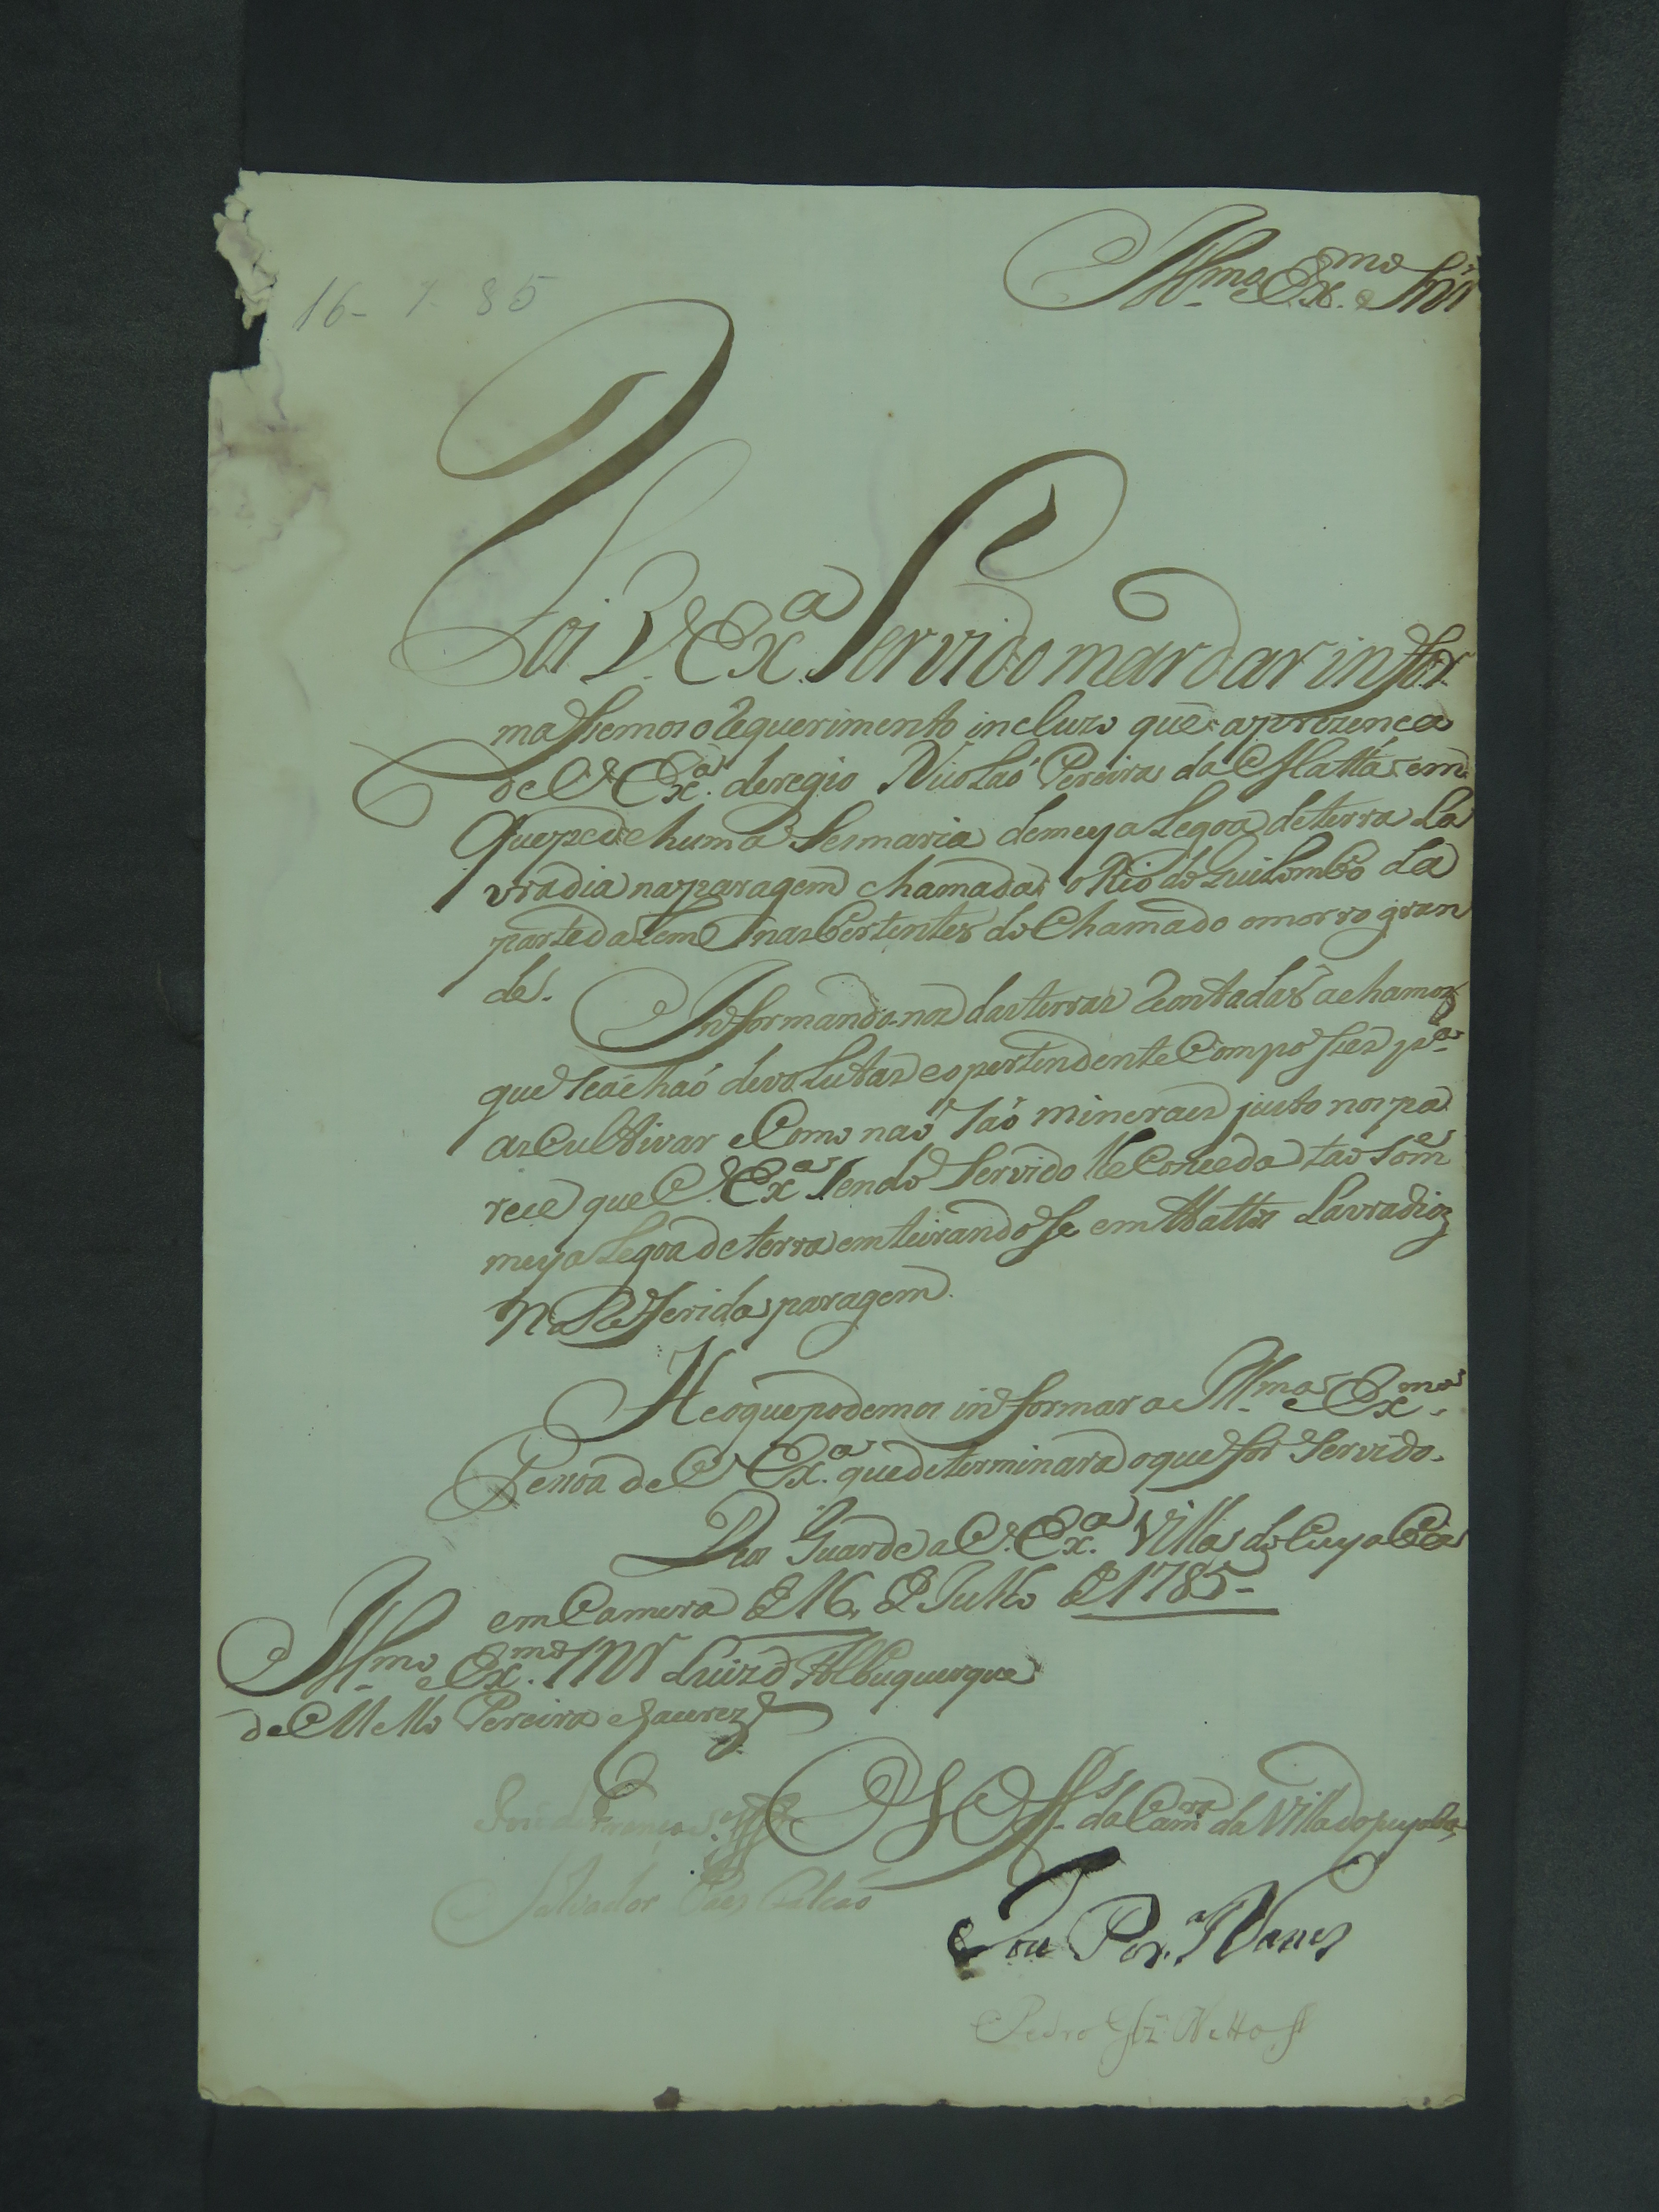 Illmo. e Exmo. Snr
16 - 7 - 85
Foi V. Exa. Servido mandar infor
massemos o Requerimento incluzo que aprezenca
de V. Exa. deregio Nicolaó Pereira da Matta em
que pede huma Sesmaria de meya Legoa de terra La
vradia na paragem chamada o Rio do Quilombo da
parte da Lem nas bertentes do Chamado o morro gran
de.
Informando-nos das terras Rontadas achamos
que se achaó devolutas e o pertendente Com posses pa.
as Cultivar e Como naó Saó mineraes justo nos pa
rece que V. Exa. Sendo Servido lhe Conceda tao Som
meya Legoa de terra em teirando se em Mattos Lavradios
Na Refferida paragem.
He o que podemos informar a Illma. e Exma.
Pessoa de V. Exa. que determinará o que for Servido.
Deos Guarde a V. Exa. Villa do Cuyaba
em Camera de 16 de Julho de 1785 -
Illmo. e Exmo. Snr Luiz d Albuquerque
de Mello Pereira e Caceres
Os Offs. da Camra. da Villa do Cuyaba
José de França
Salvador Paes Falcaó
José Per.a Nunes
Pedro Glz Netto